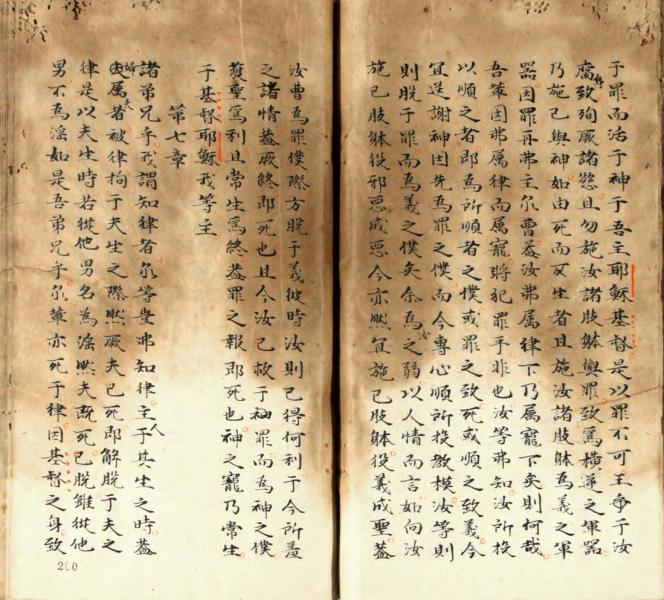 于罪而活于神于吾主耶穌基督是以罪不可王爭于汝
腐致殉厥諸慾且勿施汝諸肢躰與罪致為橫逆之軍器
乃施己與神如由死而又生者且施汝諸肢躰為義之軍
器因罪再弗主尔曹葢汝弗属律下乃属寵下矣則柯哉
吾輩因弗属律而属寵將犯罪乎非也汝等弗知汝所投
以順之者即為所順者之僕或罪之致死或順之致義今
宜送謝神因先為罪之僕而今專心順所投教模汝等則
則脫于罪而為義之僕矣余為汝之弱以人情而言如向汝
施己肢躰役邪惡成惡今亦然宜施己肢躰役義成聖葢
汝曹為罪僕際方脫于義彼時汝則已得何利于今所羞
之諸情葢厥終即死也且今汝已救于罪而為神之僕
獲聖為利且常生為終葢罪之報即死也神之寵乃常生
于基督耶穌我等主
第七章
諸弟兄乎我謂知律者尔等豈弗知律主于人其生之時葢
婦属夫者被律拘于夫生之際然厥夫已死即解脫于夫之
律是以夫生時若從他男名為淫然夫既死已脫雖從他
男不為淫如是吾弟兄乎尔輩亦死于律因基督之身致
200